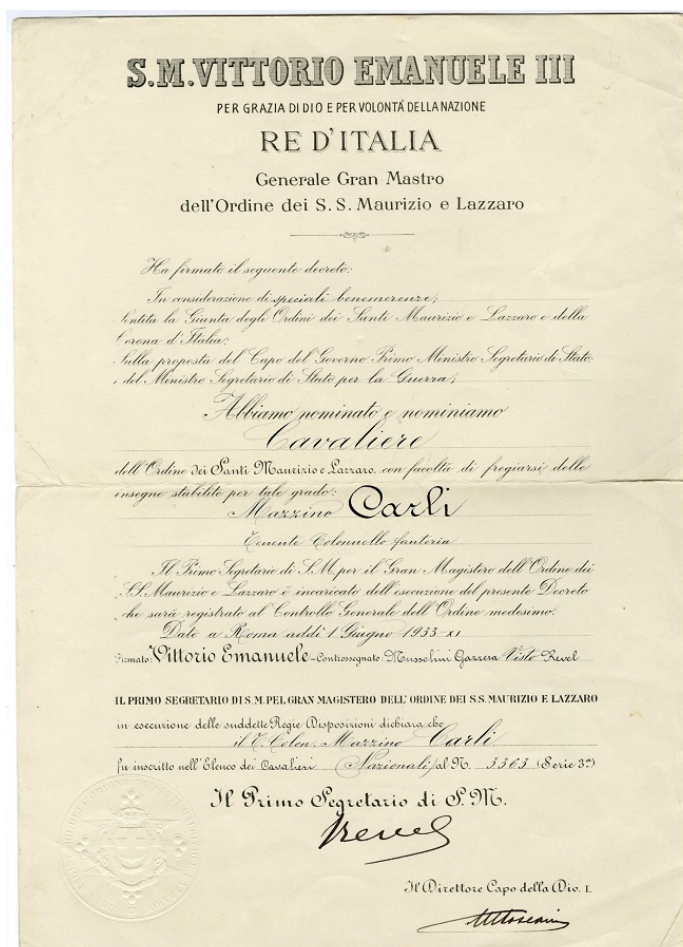 S.M. VITTORIO EMANUELE III
PER GRAZIA DI DIO E PER VOLONTÀ DELLA NAZIONE
RE D'ITALIA
Generale Gran Mastro
dell'Ordine dei S. S. Maurizio e Lazzaro
Ha firmato il seguente decreto:
In considerazione di speciali benemerenze;
Sentita la Giunta degli Ordini dei Santi Maurizio e Lazzaro e della
Corona d'Italia:
Sulla proposta del Capo del Governo Primo Ministro Segretario di Stato
e del Ministro Segretario di Stato per la Guerra;
Abbiamo nominato e nominiamo
Cavaliere
dell'Ordine dei Santi Maurizio e Lazzaro, con facoltà di fregiarsi delle
insegne stabilite per tale grado:
Mazzino Carli
Tenente Colonnello fanteria
Il Primo Segretario di S.M. per il Gran Magistero dell'Ordine dei
S.S. Maurizio e Lazzaro è incaricato dell'esecuzione del presente Decreto
che sarà registrato al Controllo Generale dell'Ordine medesimo.
Dato a Roma addì 1 Giugno 1933-XI
Firmato: Vittorio Emanuele - Controssegnato Mussolini Gazzera Visto Revel
IL PRIMO SEGRETARIO DI S. M. PEL GRAN MAGISTERO DELL'ORDINE DEI S.S. MAURIZIO E LAZZARO
in esecuzione delle suddette Regie Disposizioni dichiara che
il T. Colon. Mazzino Carli
fu inscritto nell'Elenco dei Cavalieri (Nazionali) al N. 3363 (Serie 3ª)
Il Primo Segretario di S. M.
Revel
Il Direttore Capo della Div. I.